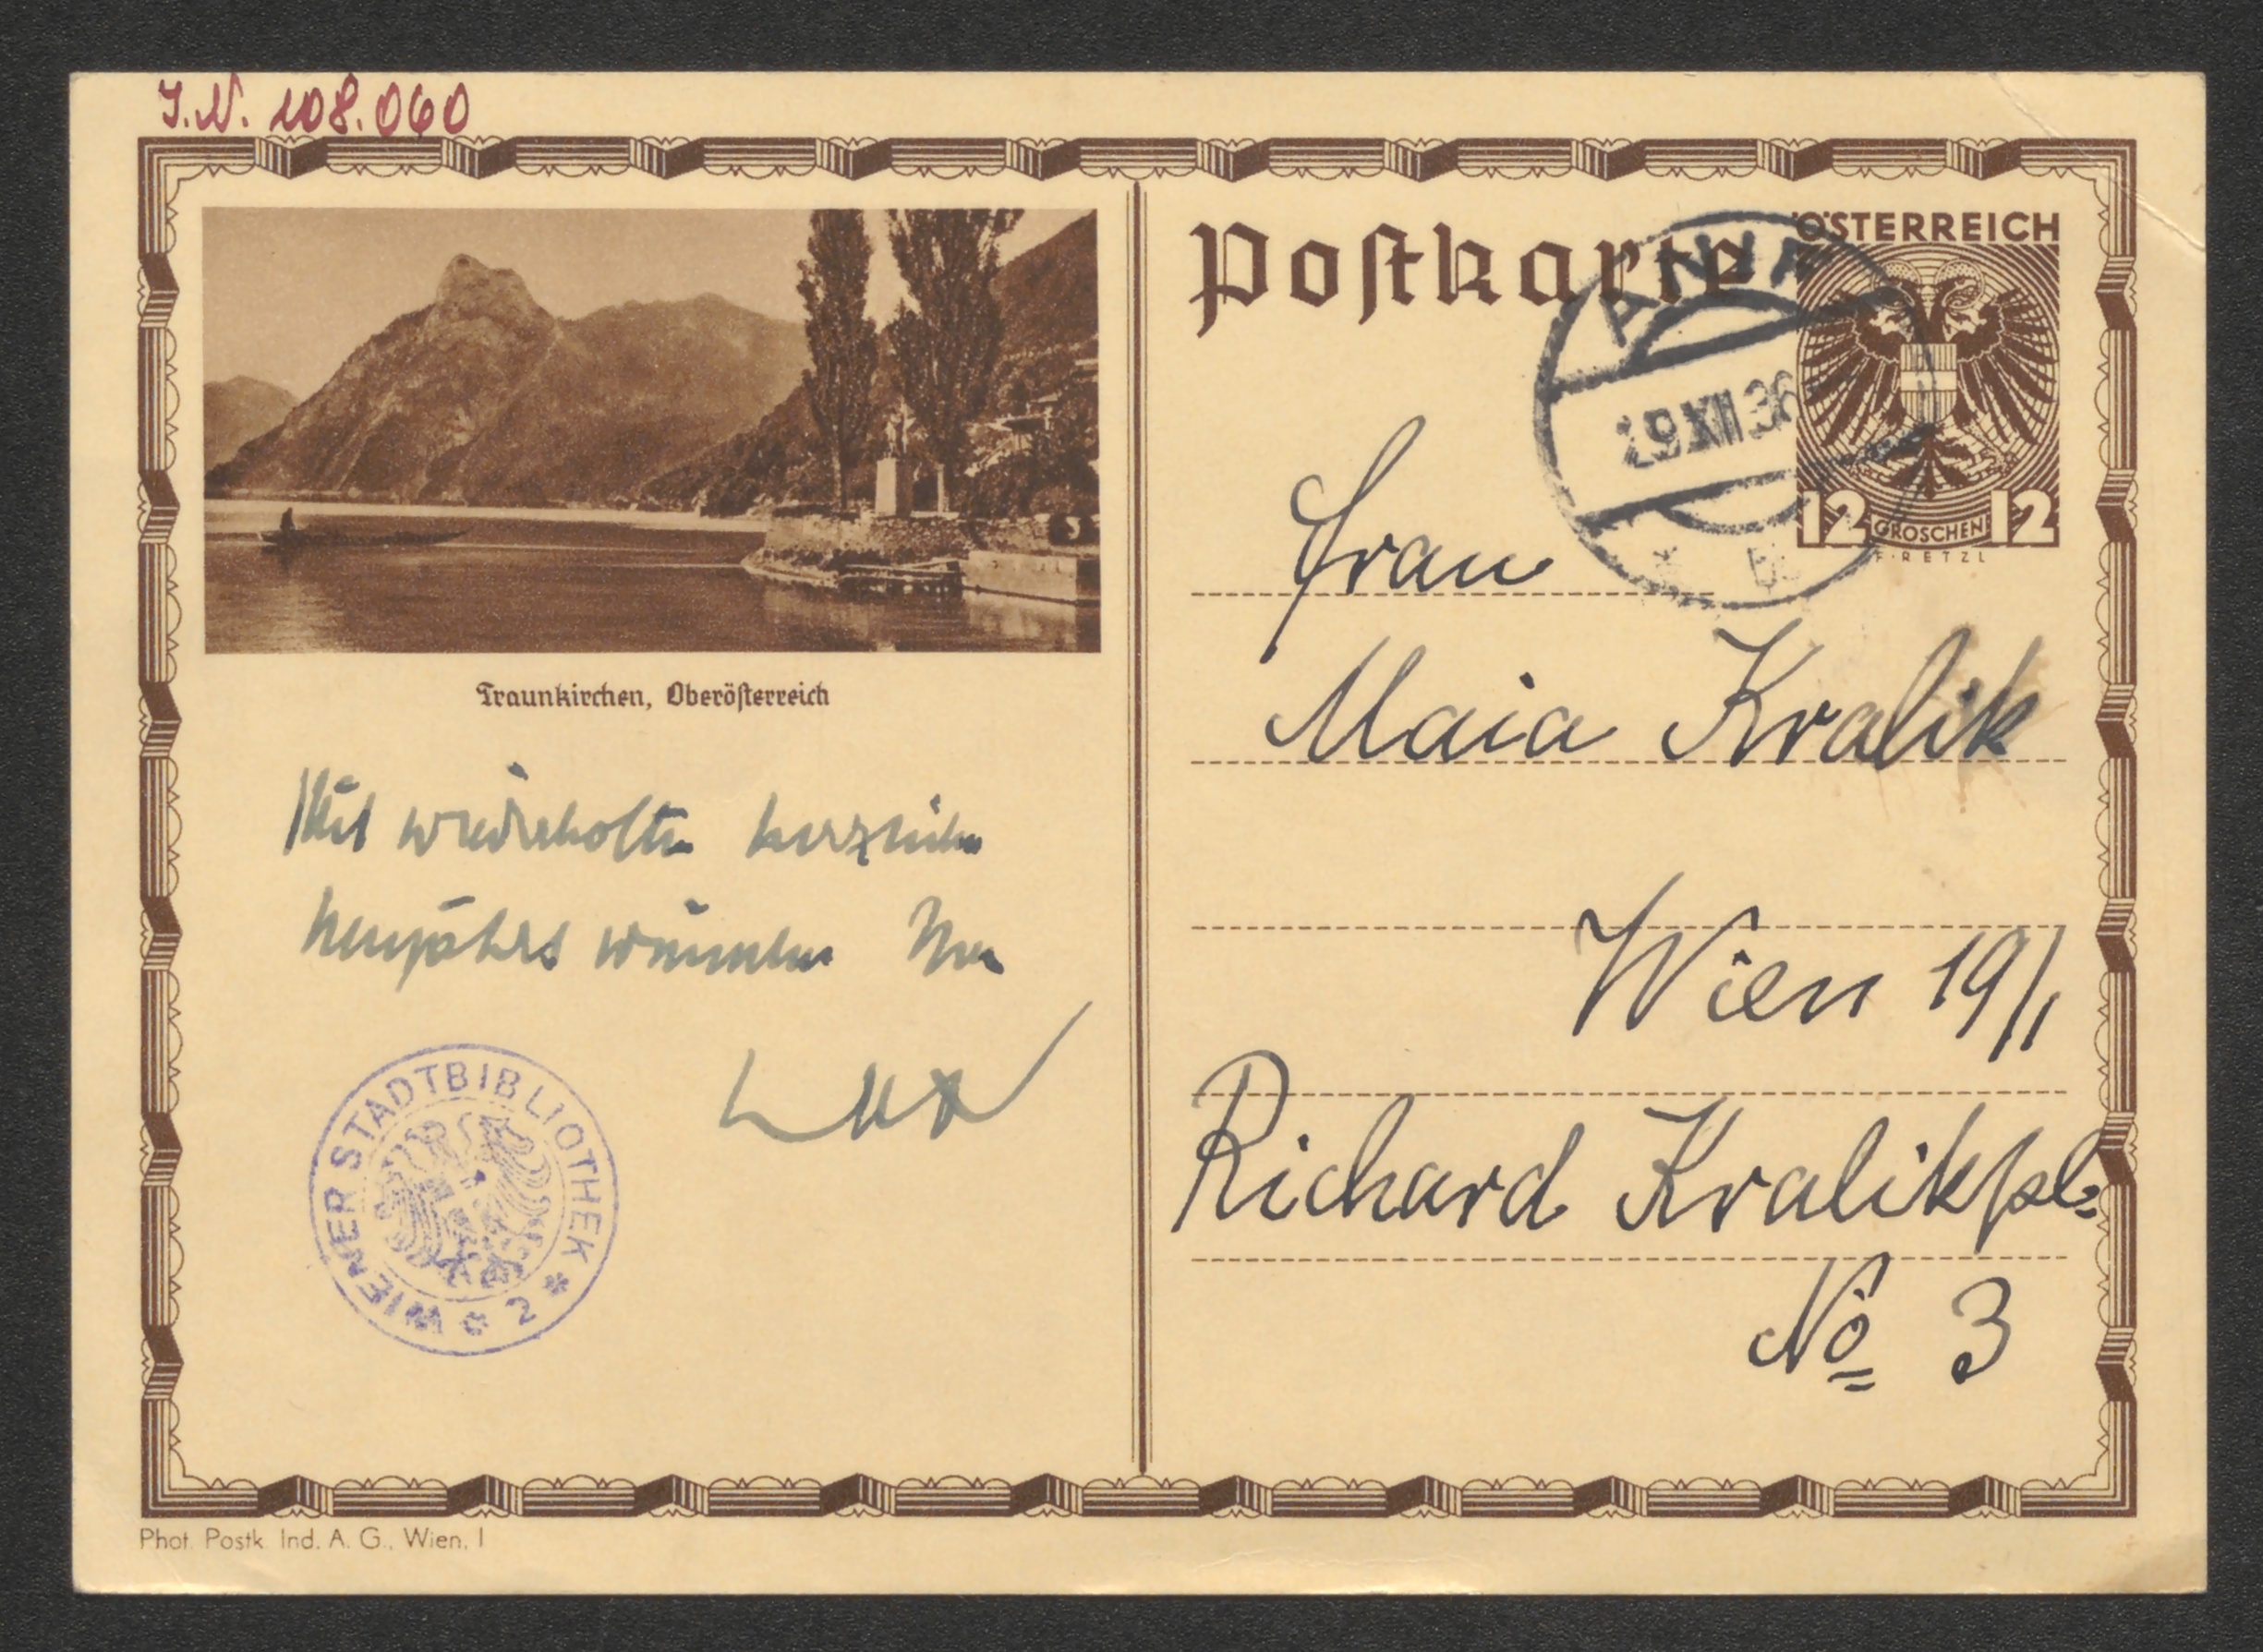 J.N. 108.060
Traunkirchen, Oberösterreich
Mit wiederholten herzlichen
Neujahrswünschen Ihr
Phot. Postk. Ind. A. G., Wien, I
WIENER STADTBIBLIOTHEK * 2 *
Postkarte
ÖSTERREICH
12 GROSCHEN 12
F. RETZL
29 XII 36
Frau
Maia Kralik
Wien 19/1
Richard Kralikpl.
No 3